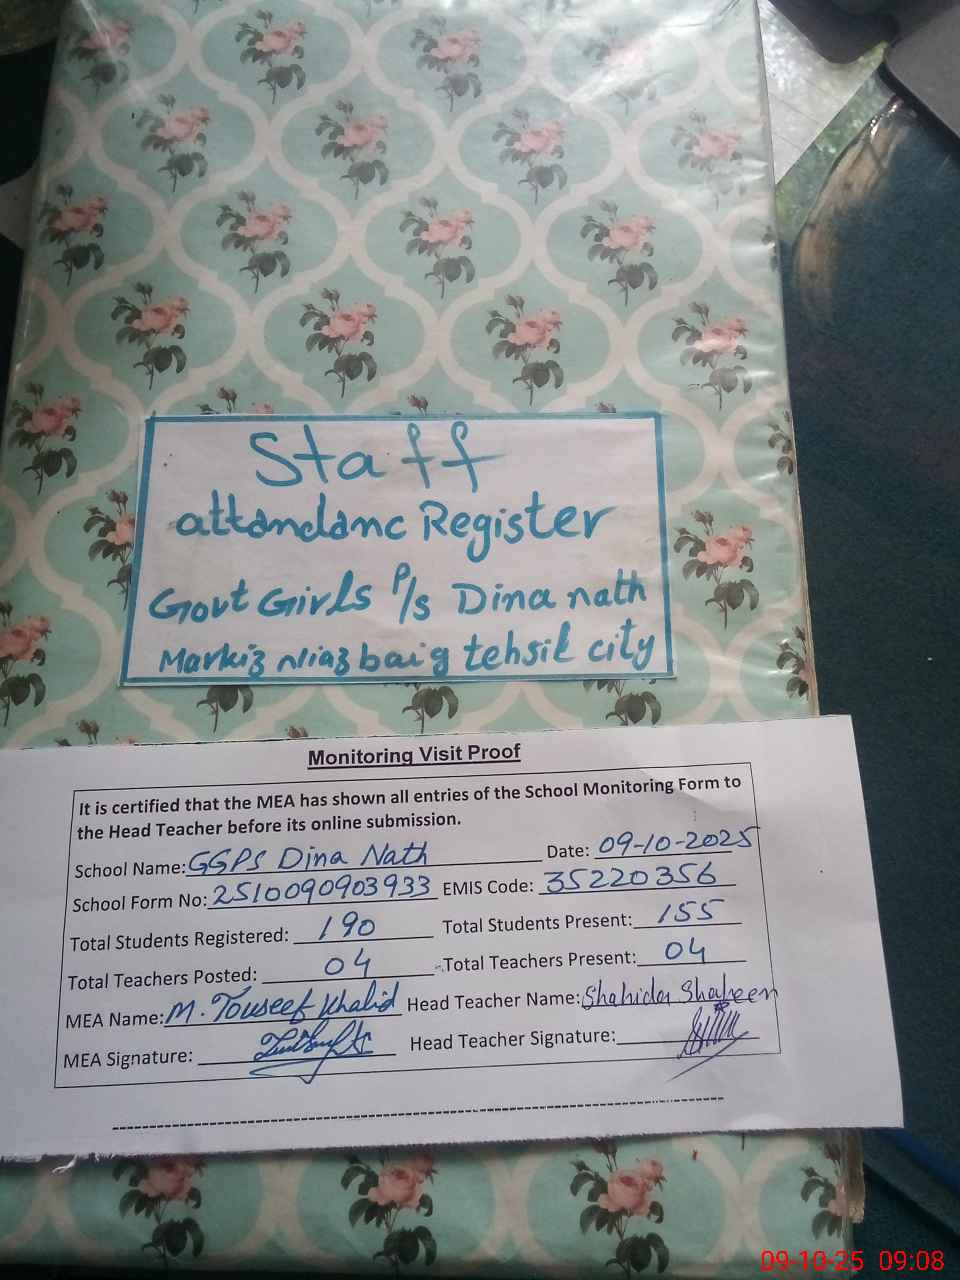 Staff
attandanc Register
Govt Girls P/s Dina nath
Markiz Niaz baig tehsil city
Monitoring Visit Proof
It is certified that the MEA has shown all entries of the School Monitoring Form to
the Head Teacher before its online submission.
School Name: GGPS Dina Nath Date: 09-10-2025
School Form No: 2510090903933 EMIS Code: 35220356
Total Students Registered: 190 Total Students Present: 155
Total Teachers Posted: 04 Total Teachers Present: 04
MEA Name: M. Touseef Khalid Head Teacher Name: Shahida Shaheen
MEA Signature: Head Teacher Signature:
09-10-25 09:08